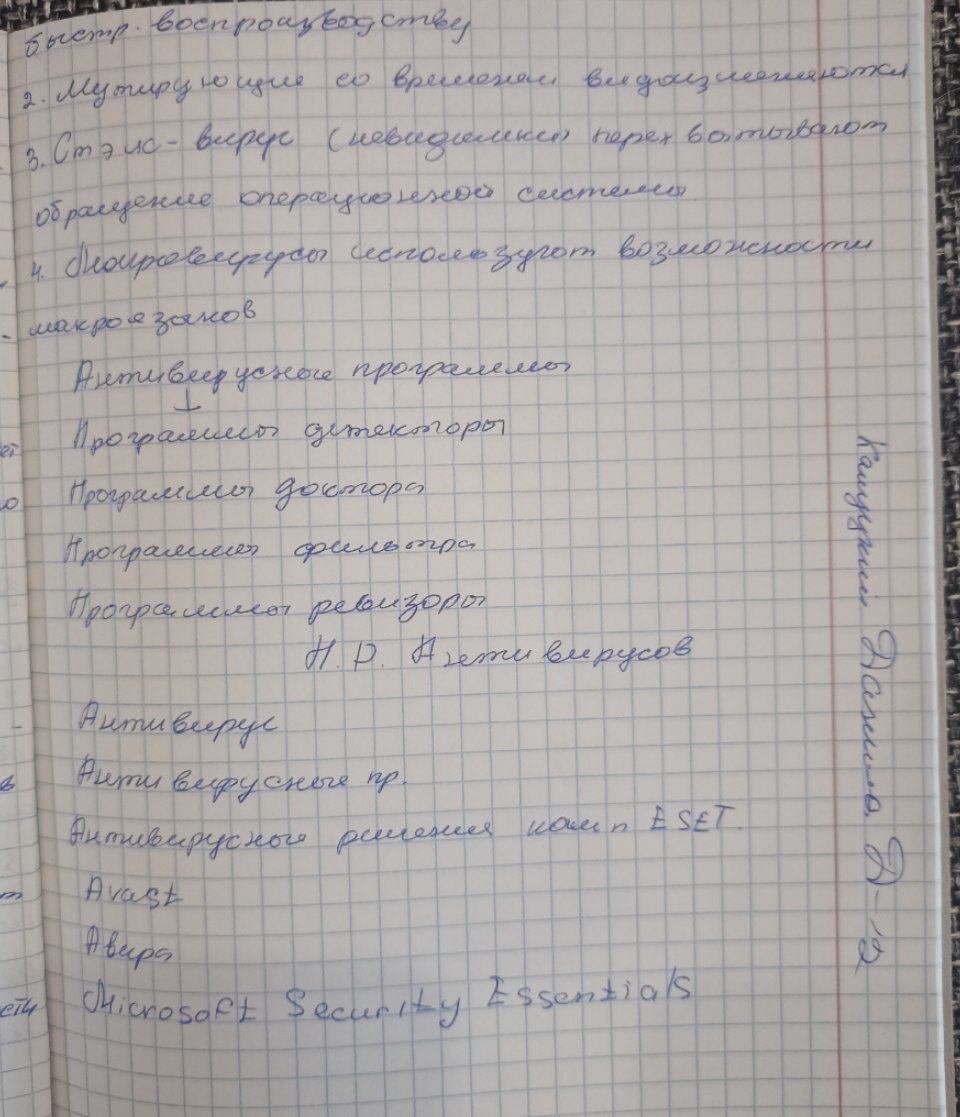 быстр. воспроизводству
2. Мутирующие со временем видоизменяются
3. Стэлс-вирус (невидимки) перехватывают
обращение операционной системы.
4. Макровирусы используют возможности
макроязыков
Антивирусные программы
↓
Программы детекторы
Программы доктора
Программы фильтра
Программы ревизоры
Н.Р. Антивирусов
Антивирус
Антивирусные пр.
Антивирусные решения комп ESET.
Avast
Авира
Microsoft Security Essentials
Данила Д-12